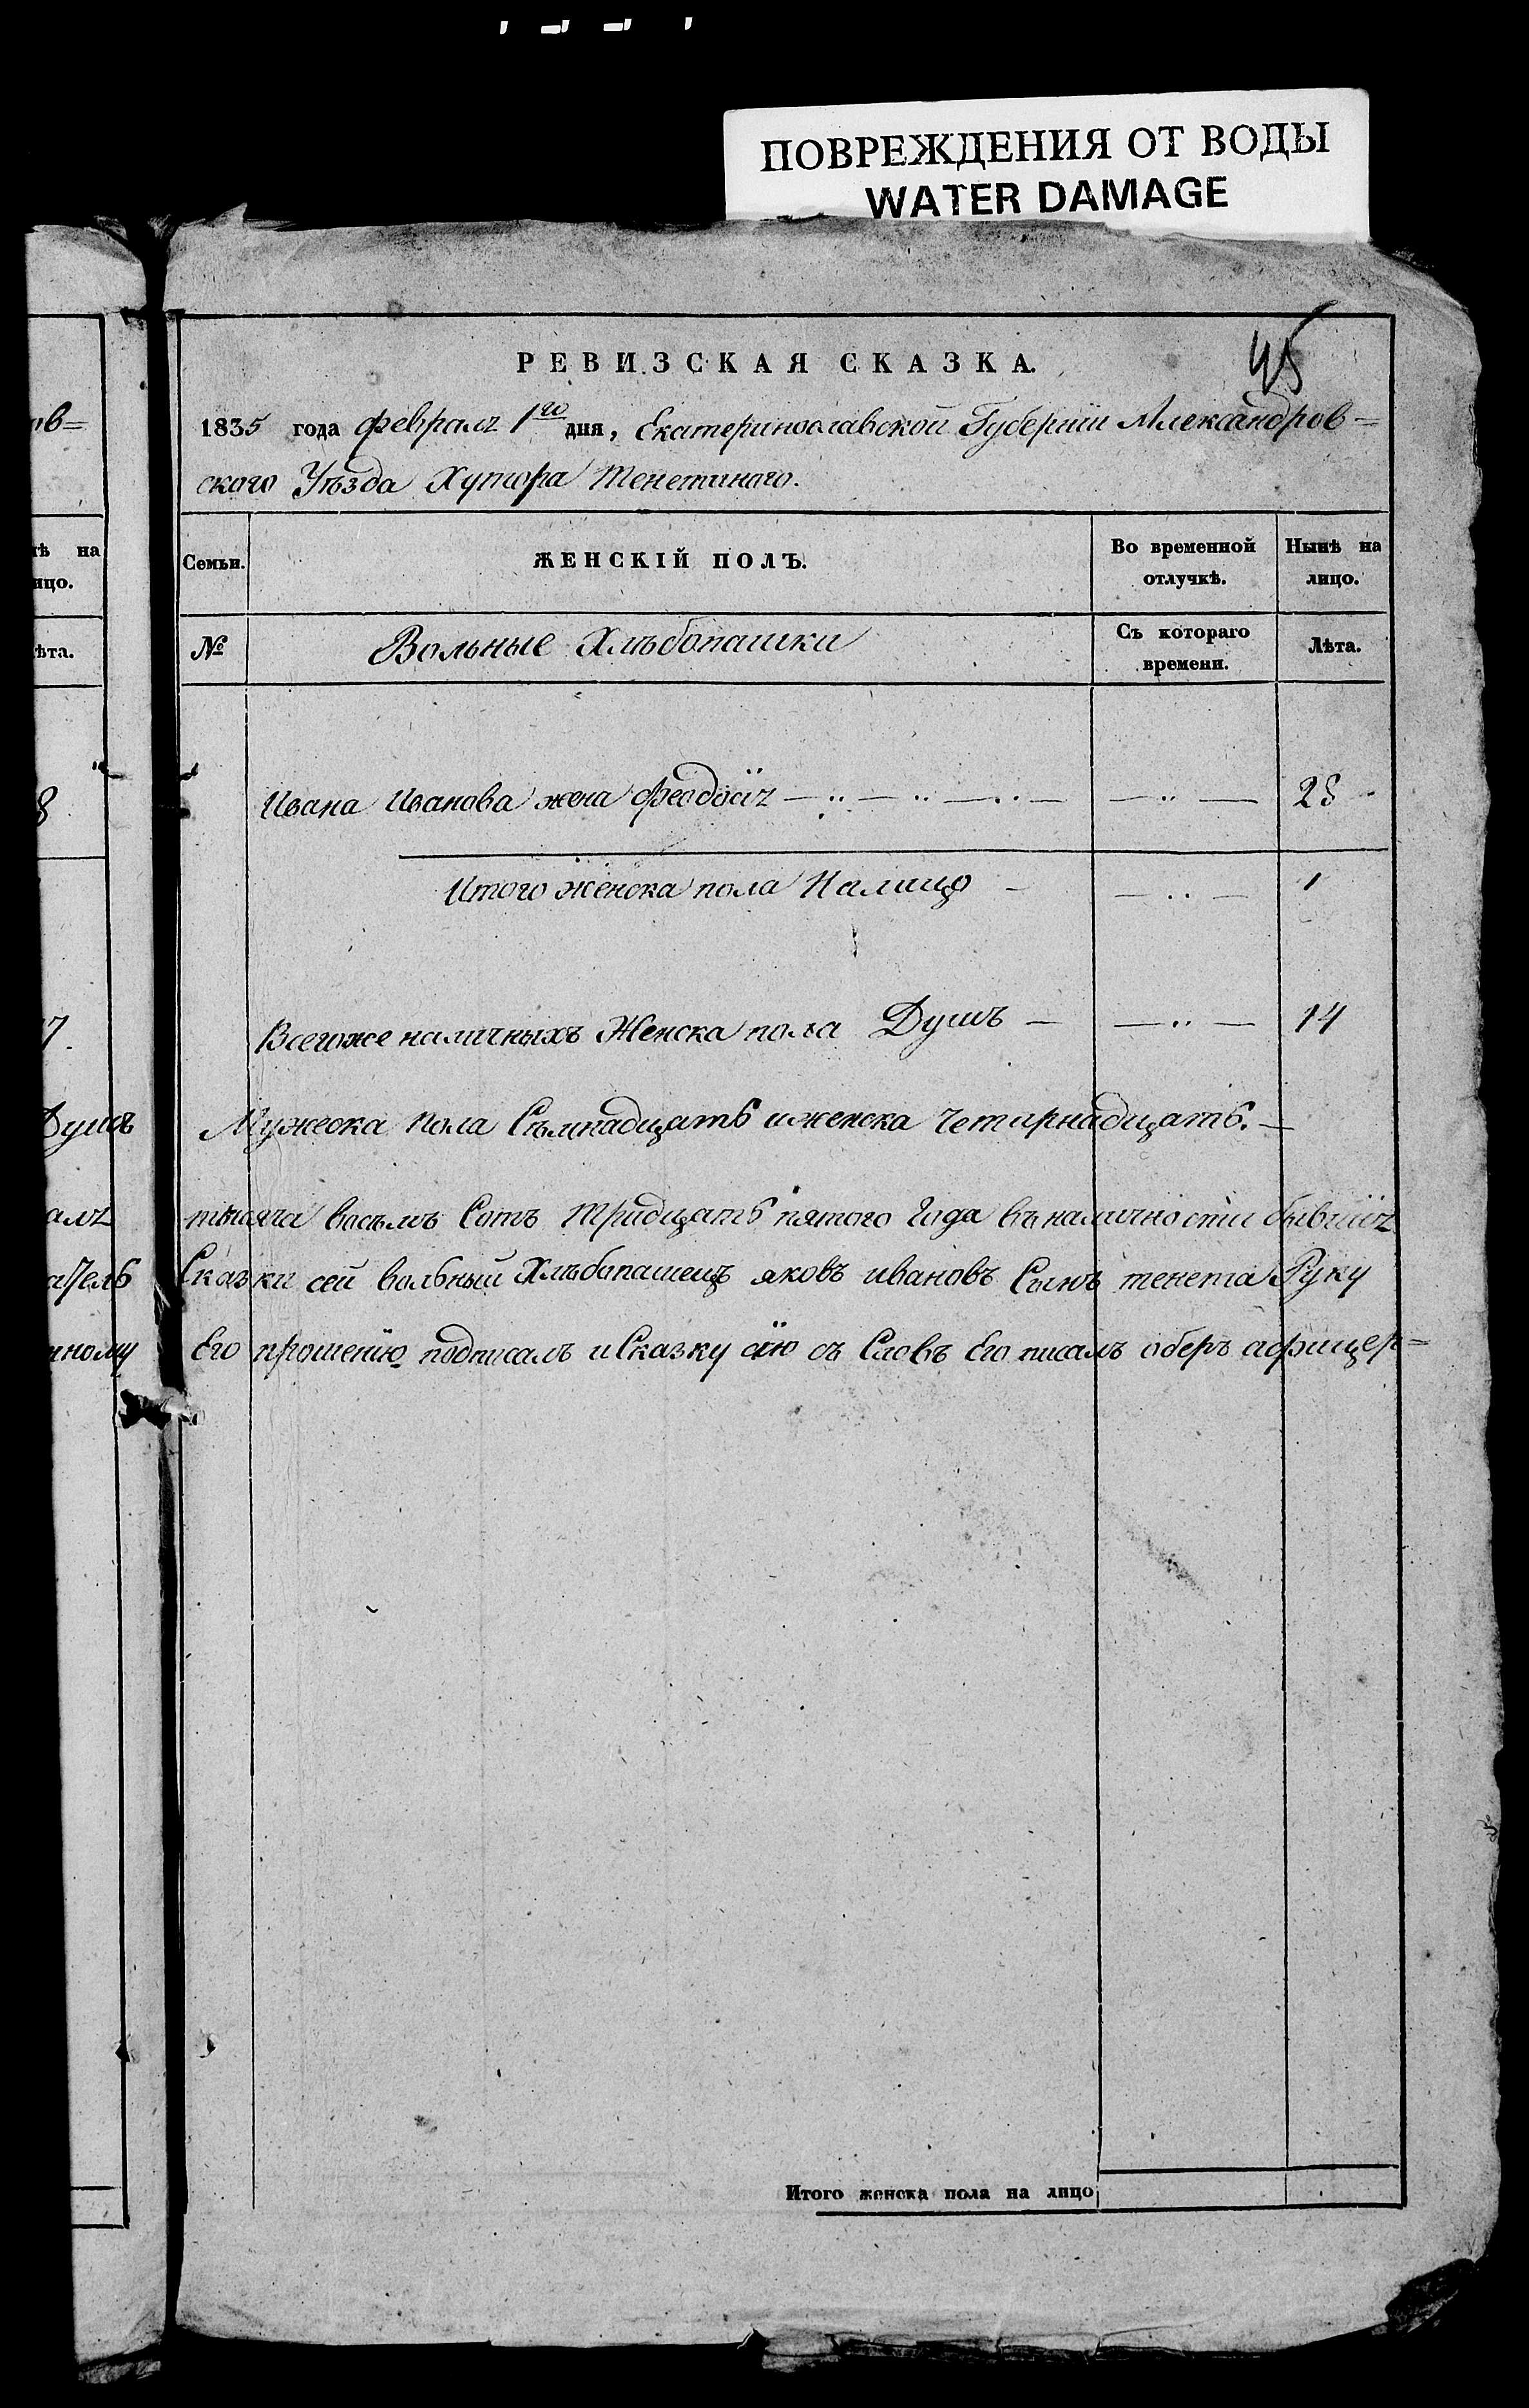 ПОВРЕЖДЕНИЯ ОТ ВОДЫ
WATER DAMAGE
45
РЕВИЗСКАЯ СКАЗКА.
1835 года февраля 1го дня, Екатеринославской Губернiи Александров=
ского Уѣзда Хутора Тенетиного.
Семьи. ЖЕНСКІЙ ПОЛЪ. Во временной отлучкѣ. Нынѣ на лицо.
№ Вольные Хлѣбопашки Съ котораго времени. Лѣта.
Ивана Иванова жена Феодосiя — „ — „ — „ — — „ — 28
Итого женска пола Налицо — — „ — 1
Всегоже наличныхъ Женска пола Душъ — — „ — 14
Душъ Мужеска пола Сѣмнадцать иженска Четирнадцать. —
тысяча восьмъ Сотъ тридцать пятого Года въналичности бывшiя
Сказки сей вольный Хлѣбопашецъ яковъ ивановъ Сынъ тенета Руку
Его прошенiю подписалъ иСказку сiю съ Словъ Его писалъ оберъ афицер=
Итого женска пола на лицо